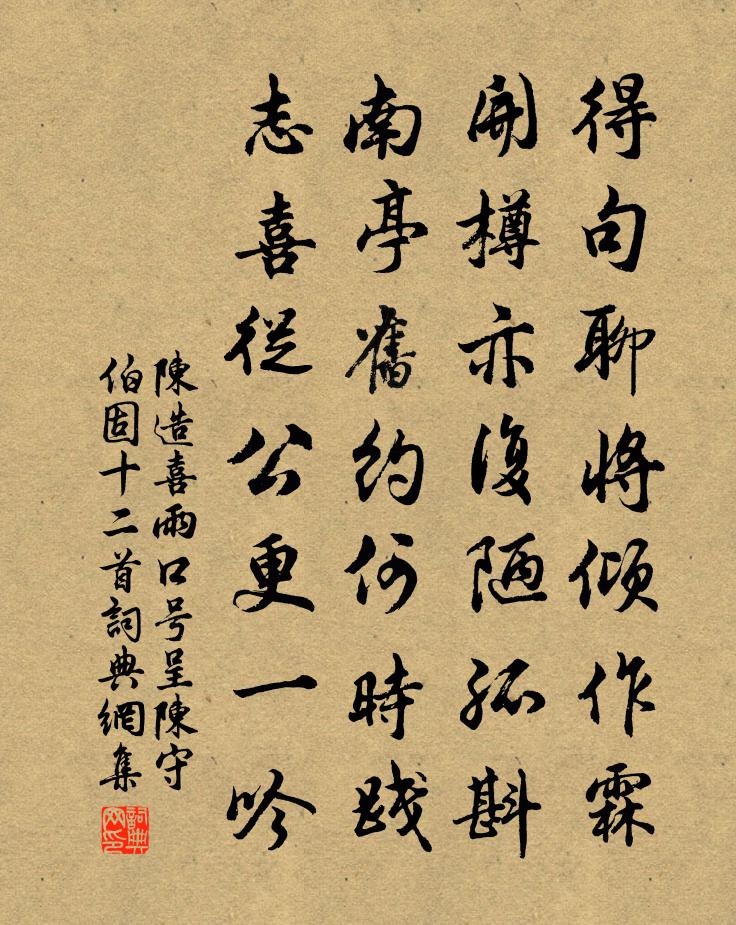 得句聊將傾作霖
開樽亦復陋孤斟
南亭舊約何時踐
志喜從公更一吟
陳造喜雨口号呈陳守
伯固十二首詞典網集
詞典网印